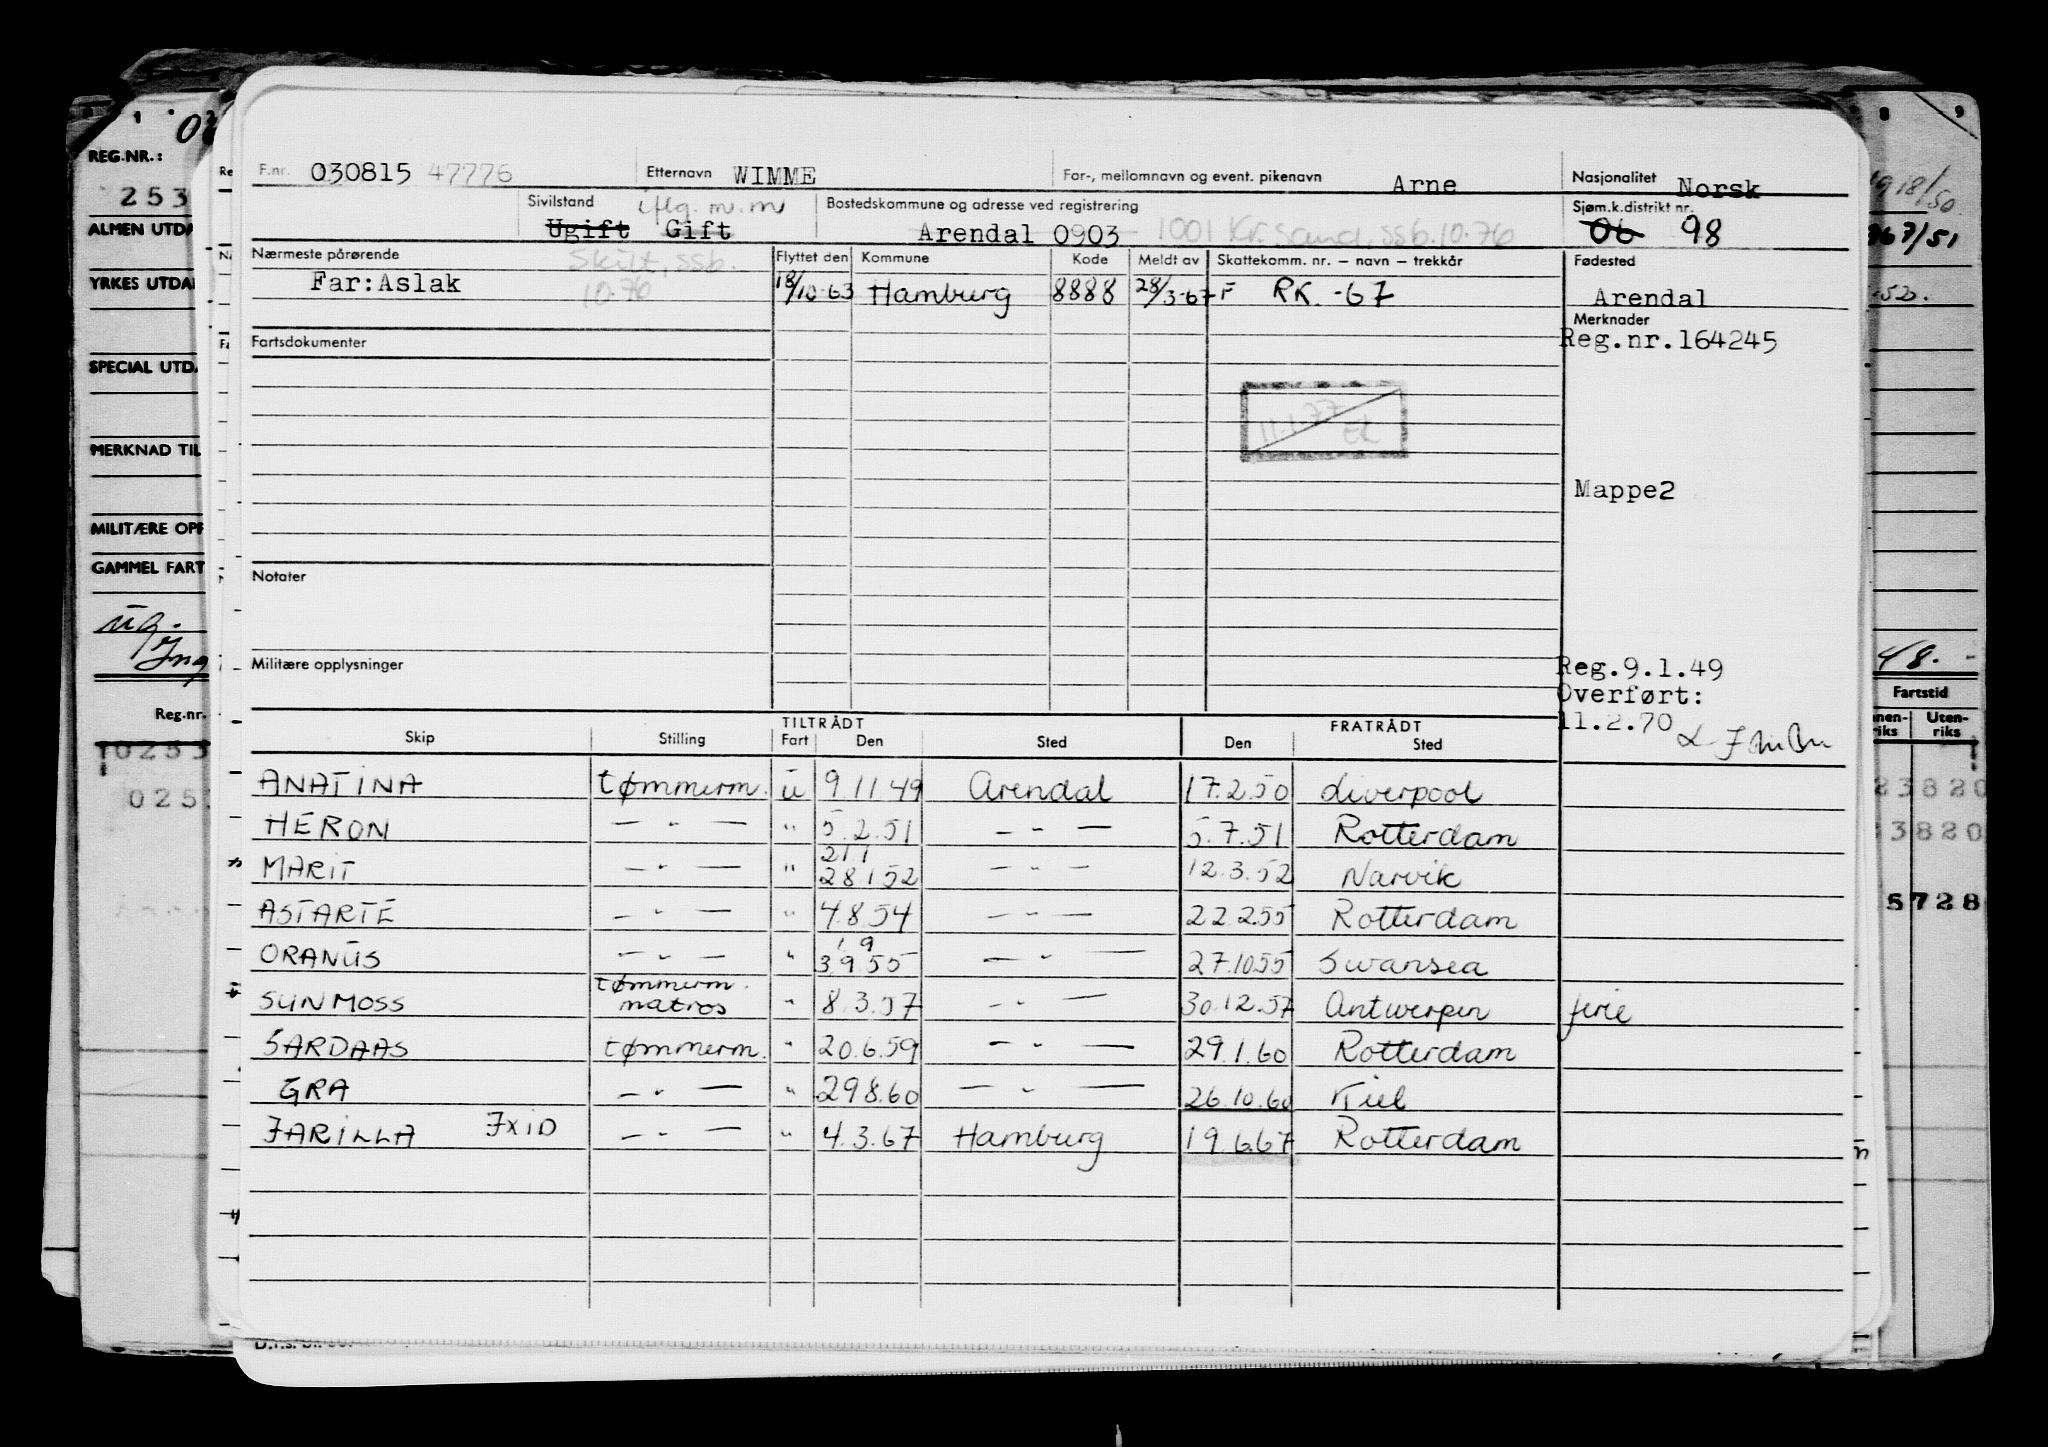 F.nr. 030815 47776 Etternavn WIMME For-, mellomnavn og event. pikenavn Arne Nasjonalitet Norsk
Sivilstand iflg. m.m Bostedskommune og adresse ved registrering Sjøm.k.distrikt nr.
Ugift Gift Arendal 0903 1001 Kr.sand, ssb.10.76 06 98
Nærmeste pårørende Skilt, ssb. 10.76 Flyttet den Kommune Kode Meldt av Skattekomm. nr. – navn – trekkår Fødested
Far:Aslak 18/10-63 Hamburg 8888 28/3-67 F RK. -67 Arendal
Merknader
Fartsdokumenter Reg.nr.164245
11.1.77 EL
Mappe2
Notater
Militære opplysninger Reg.9.1.49
Overført:
11.2.70
TILTRÅDT FRATRÅDT
Skip Stilling Fart Den Sted Den Sted
ANATINA tømmerm. u 9.11.49 Arendal 17.2.50 Liverpool
HERON — " — " 5.2.51 — " — 5.7.51 Rotterdam
MARIT — " — " 211 28152 — " — 12.3.52 Narvik
ASTARTE — " — " 4.8.54 — " — 22.2.55 Rotterdam
ORANUS — " — " 1 9 3955 — " — 27.10.55 Swansea
SUNMOSS tømmerm. matros " 8.3.57 — " — 30.12.57 Antwerpen ferie
SARDAAS tømmerm. " 20.6.59 — " — 29.1.60 Rotterdam
GRA — " — " 29.8.60 — " — 26.10.60 Kiel
JARILLA JXID — " — " 4.3.67 Hamburg 19.6.67 Rotterdam
REG.NR.:
253
ALMEN UTDA
YRKES UTDA
SPECIAL UTDA
MERKNAD TIL
MILITÆRE OPP
GAMMEL FART
ug.
Ing
Reg.nr.
10253
025
8 9
1918/50
967/51
52.
48. -
Fartstid
nen-riks Uten-riks
23820
3820
5728